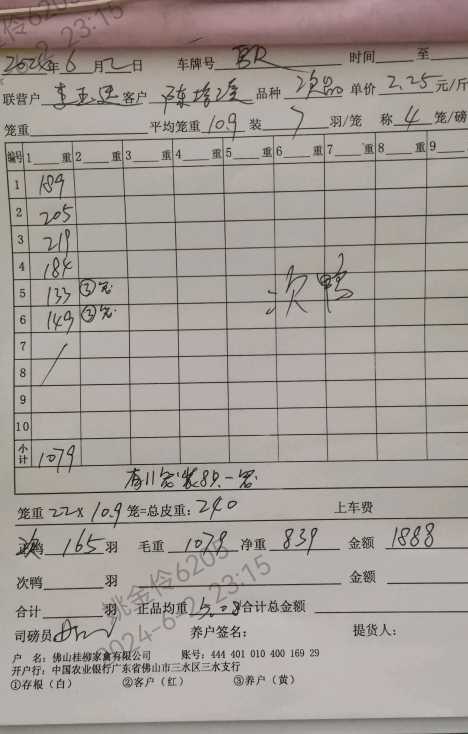 2024年6月2日 车牌号 时间 至
联营户 李 客户 陈 品种 次品 单价 2.25 元/斤
笼重 平均笼重 10.9 装 7 羽/笼 称 4 笼/磅
编号 1 重 2 重 3 重 4 重 5 重 6 重 7 重 8 重 9
1 189
2 205
3 219
4 184
5 133 ③笼
6 149 ③笼
次鸭
7
8
9
10
小计 1079
有11笼装8只一笼
笼重 22×10.9 笼=总皮重: 240 上车费
鸭 165 羽 毛重 1079 净重 839 金额 1888
次鸭 羽 金额
合计 羽 正品均重 5.08 合计总金额
司磅员 养户签名: 提货人:
户 名: 佛山桂柳家禽有限公司 账号: 444 401 010 400 169 29
开户行: 中国农业银行广东省佛山市三水区三水支行
①存根（白） ②客户（红） ③养户（黄）
姚金伶6205
2024-6-2 23:15